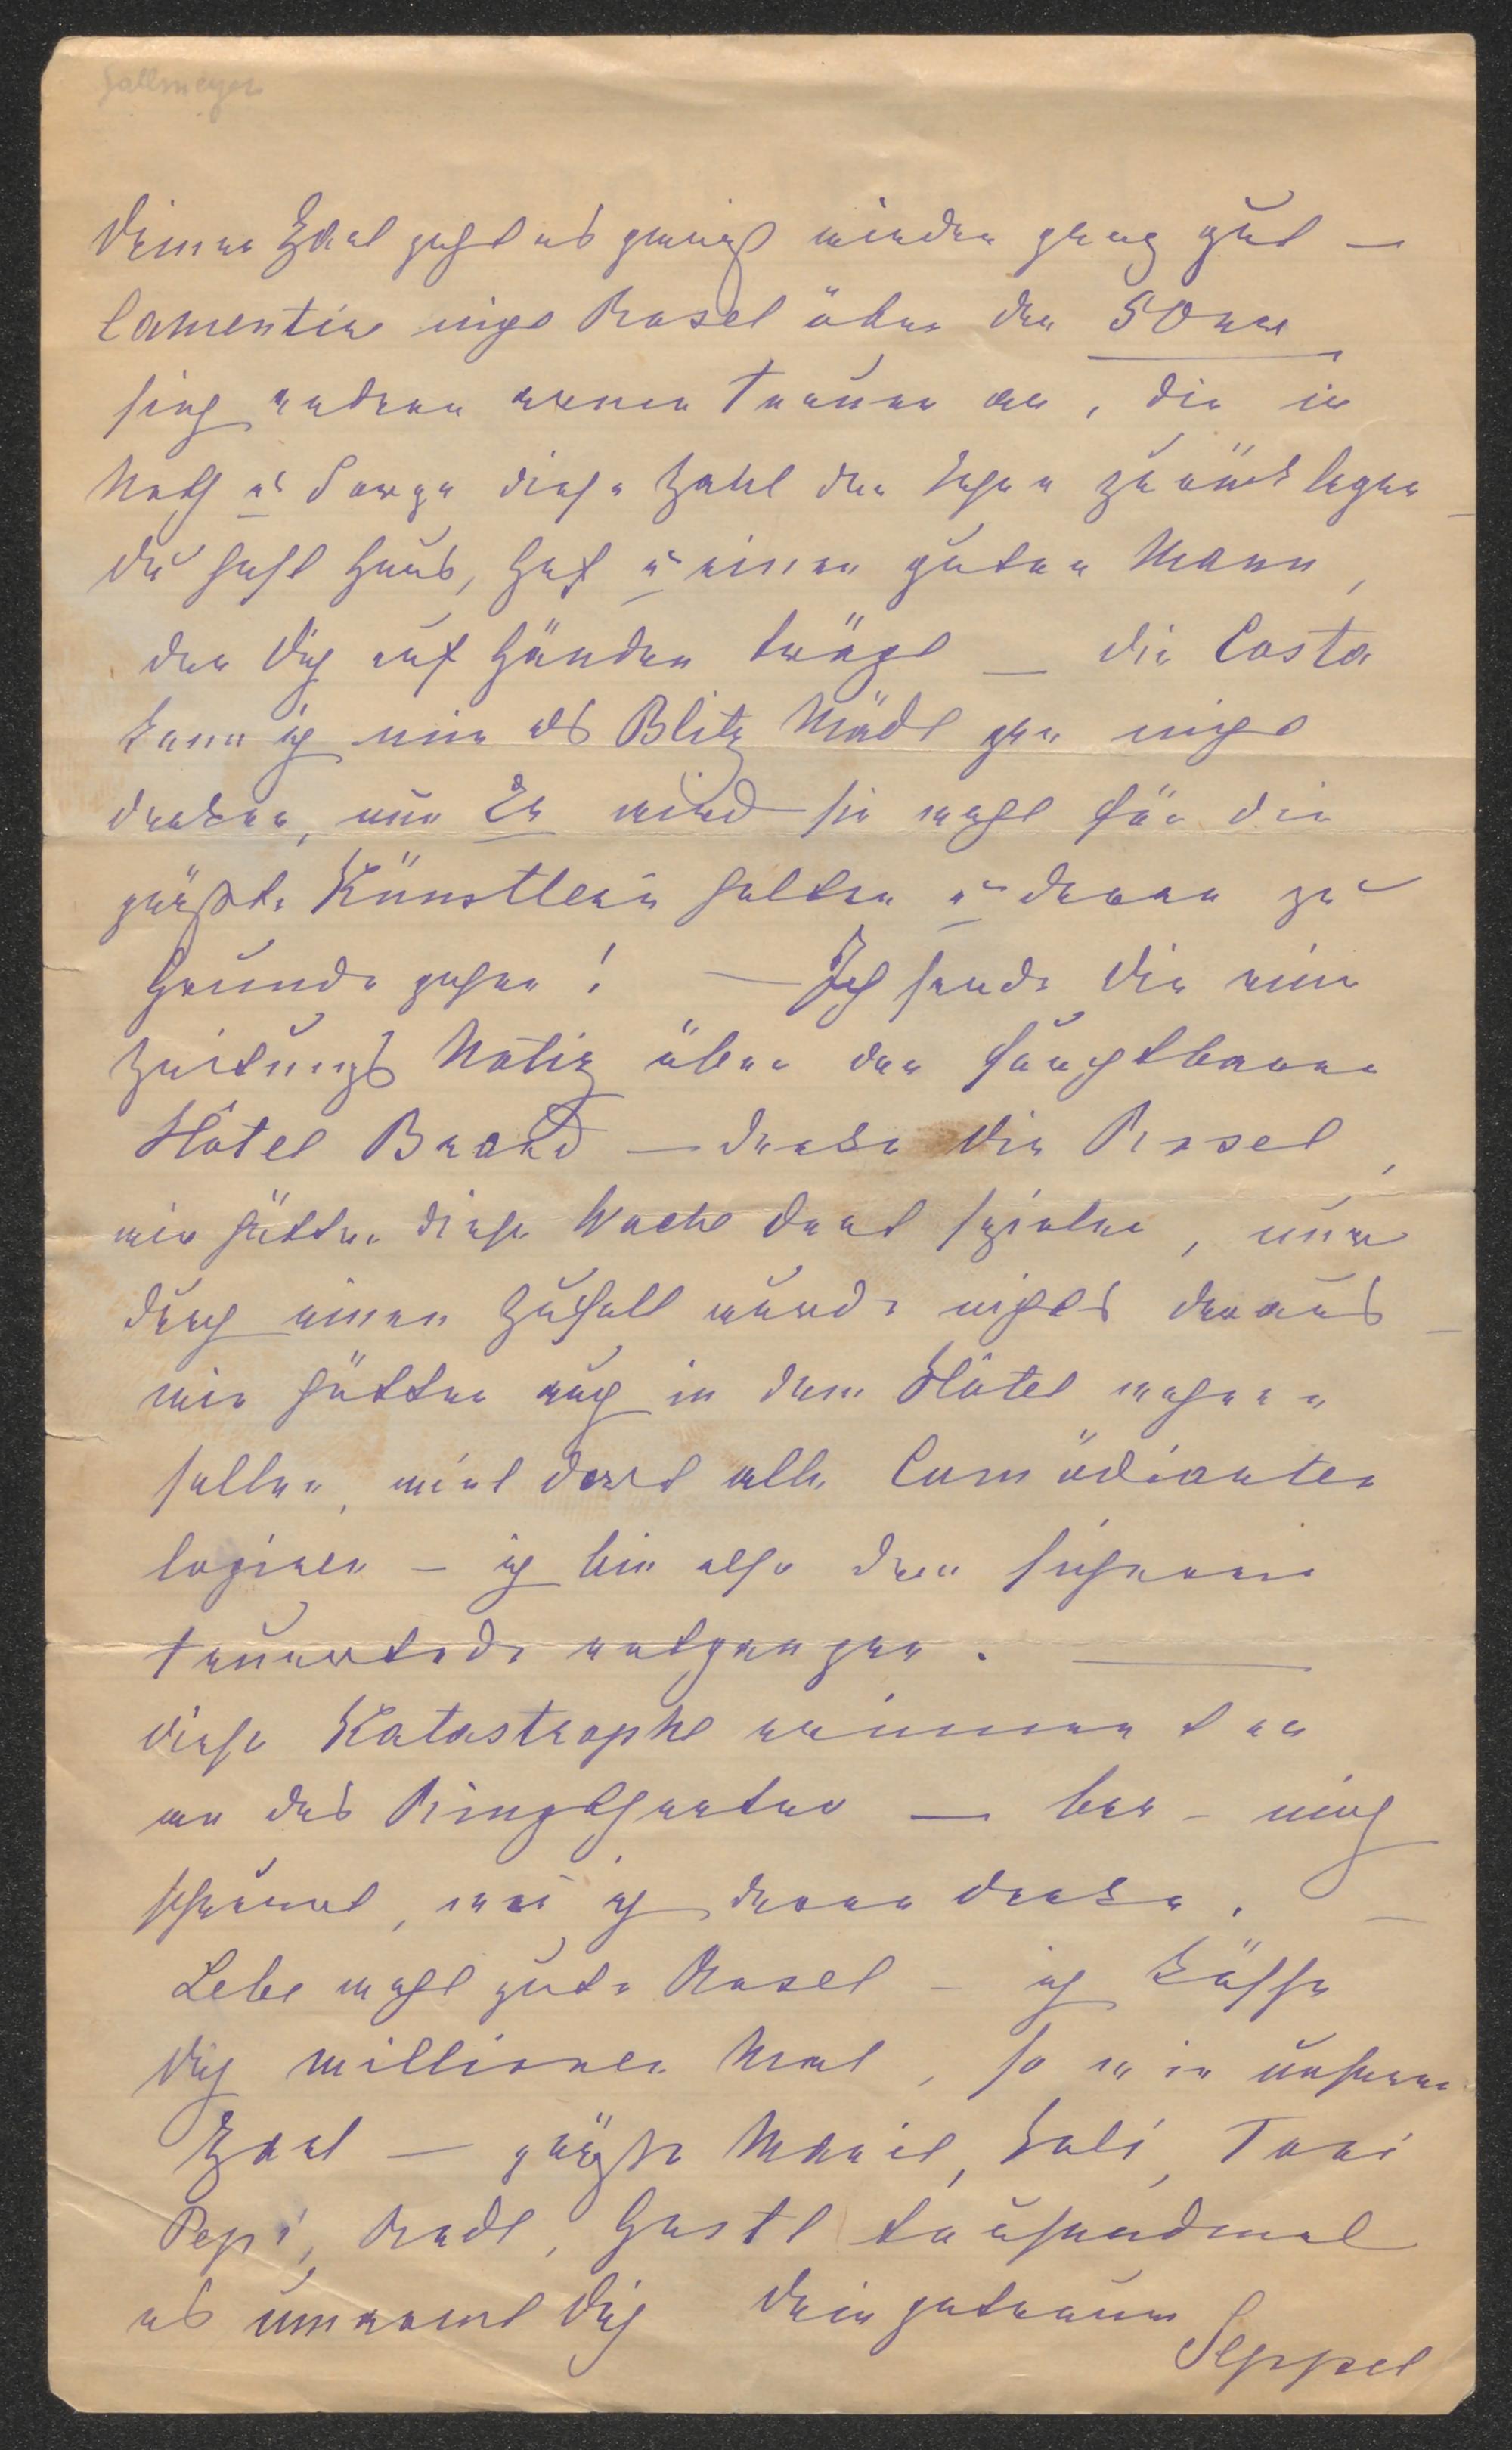 Gallmeyer
Deinen Edel geht es gewiß wieder ganz gut —
lamentire nicht Rosel über den 50ger
sieh anderen armen Frauen an, die in
Noth u Sorge diese Zahl der Jahre zurücklegen —
Du hast Haus, Hof u einen guten Mann,
der Dich auf Händen trägt — die Costa
kann ich mir als Blitz Mädl gar nicht
denken, nur Er wird sie wohl für die
größte Künstlerin halten u daran zu
Grunde gehen! — Ich sende Dir eine
Zeitungs Notiz über den furchtbaren
Hôtel Brand — denke Dir Rosel,
wir hätten diese Woche dort spielen, nur
durch einen Zufall wurde nichts daraus —
wir hätten auch in dem Hôtel wohnen
sollen, weil dort alle Comödianten
logiren — ich bin also dem sicheren
Feuertode entgangen. —
Diese Katastrophe erinnert an
an das Ringtheater — brr — mich
schauert, wenn ich daran denke. —
Lebe wohl gute Rosel — ich küsse
Dich millionen Mal, so wie unseren
Edel — grüße Marie, Toni
Pepi, Gustl tausendmal
es umarmt Dich Dein getreuer
Seppel